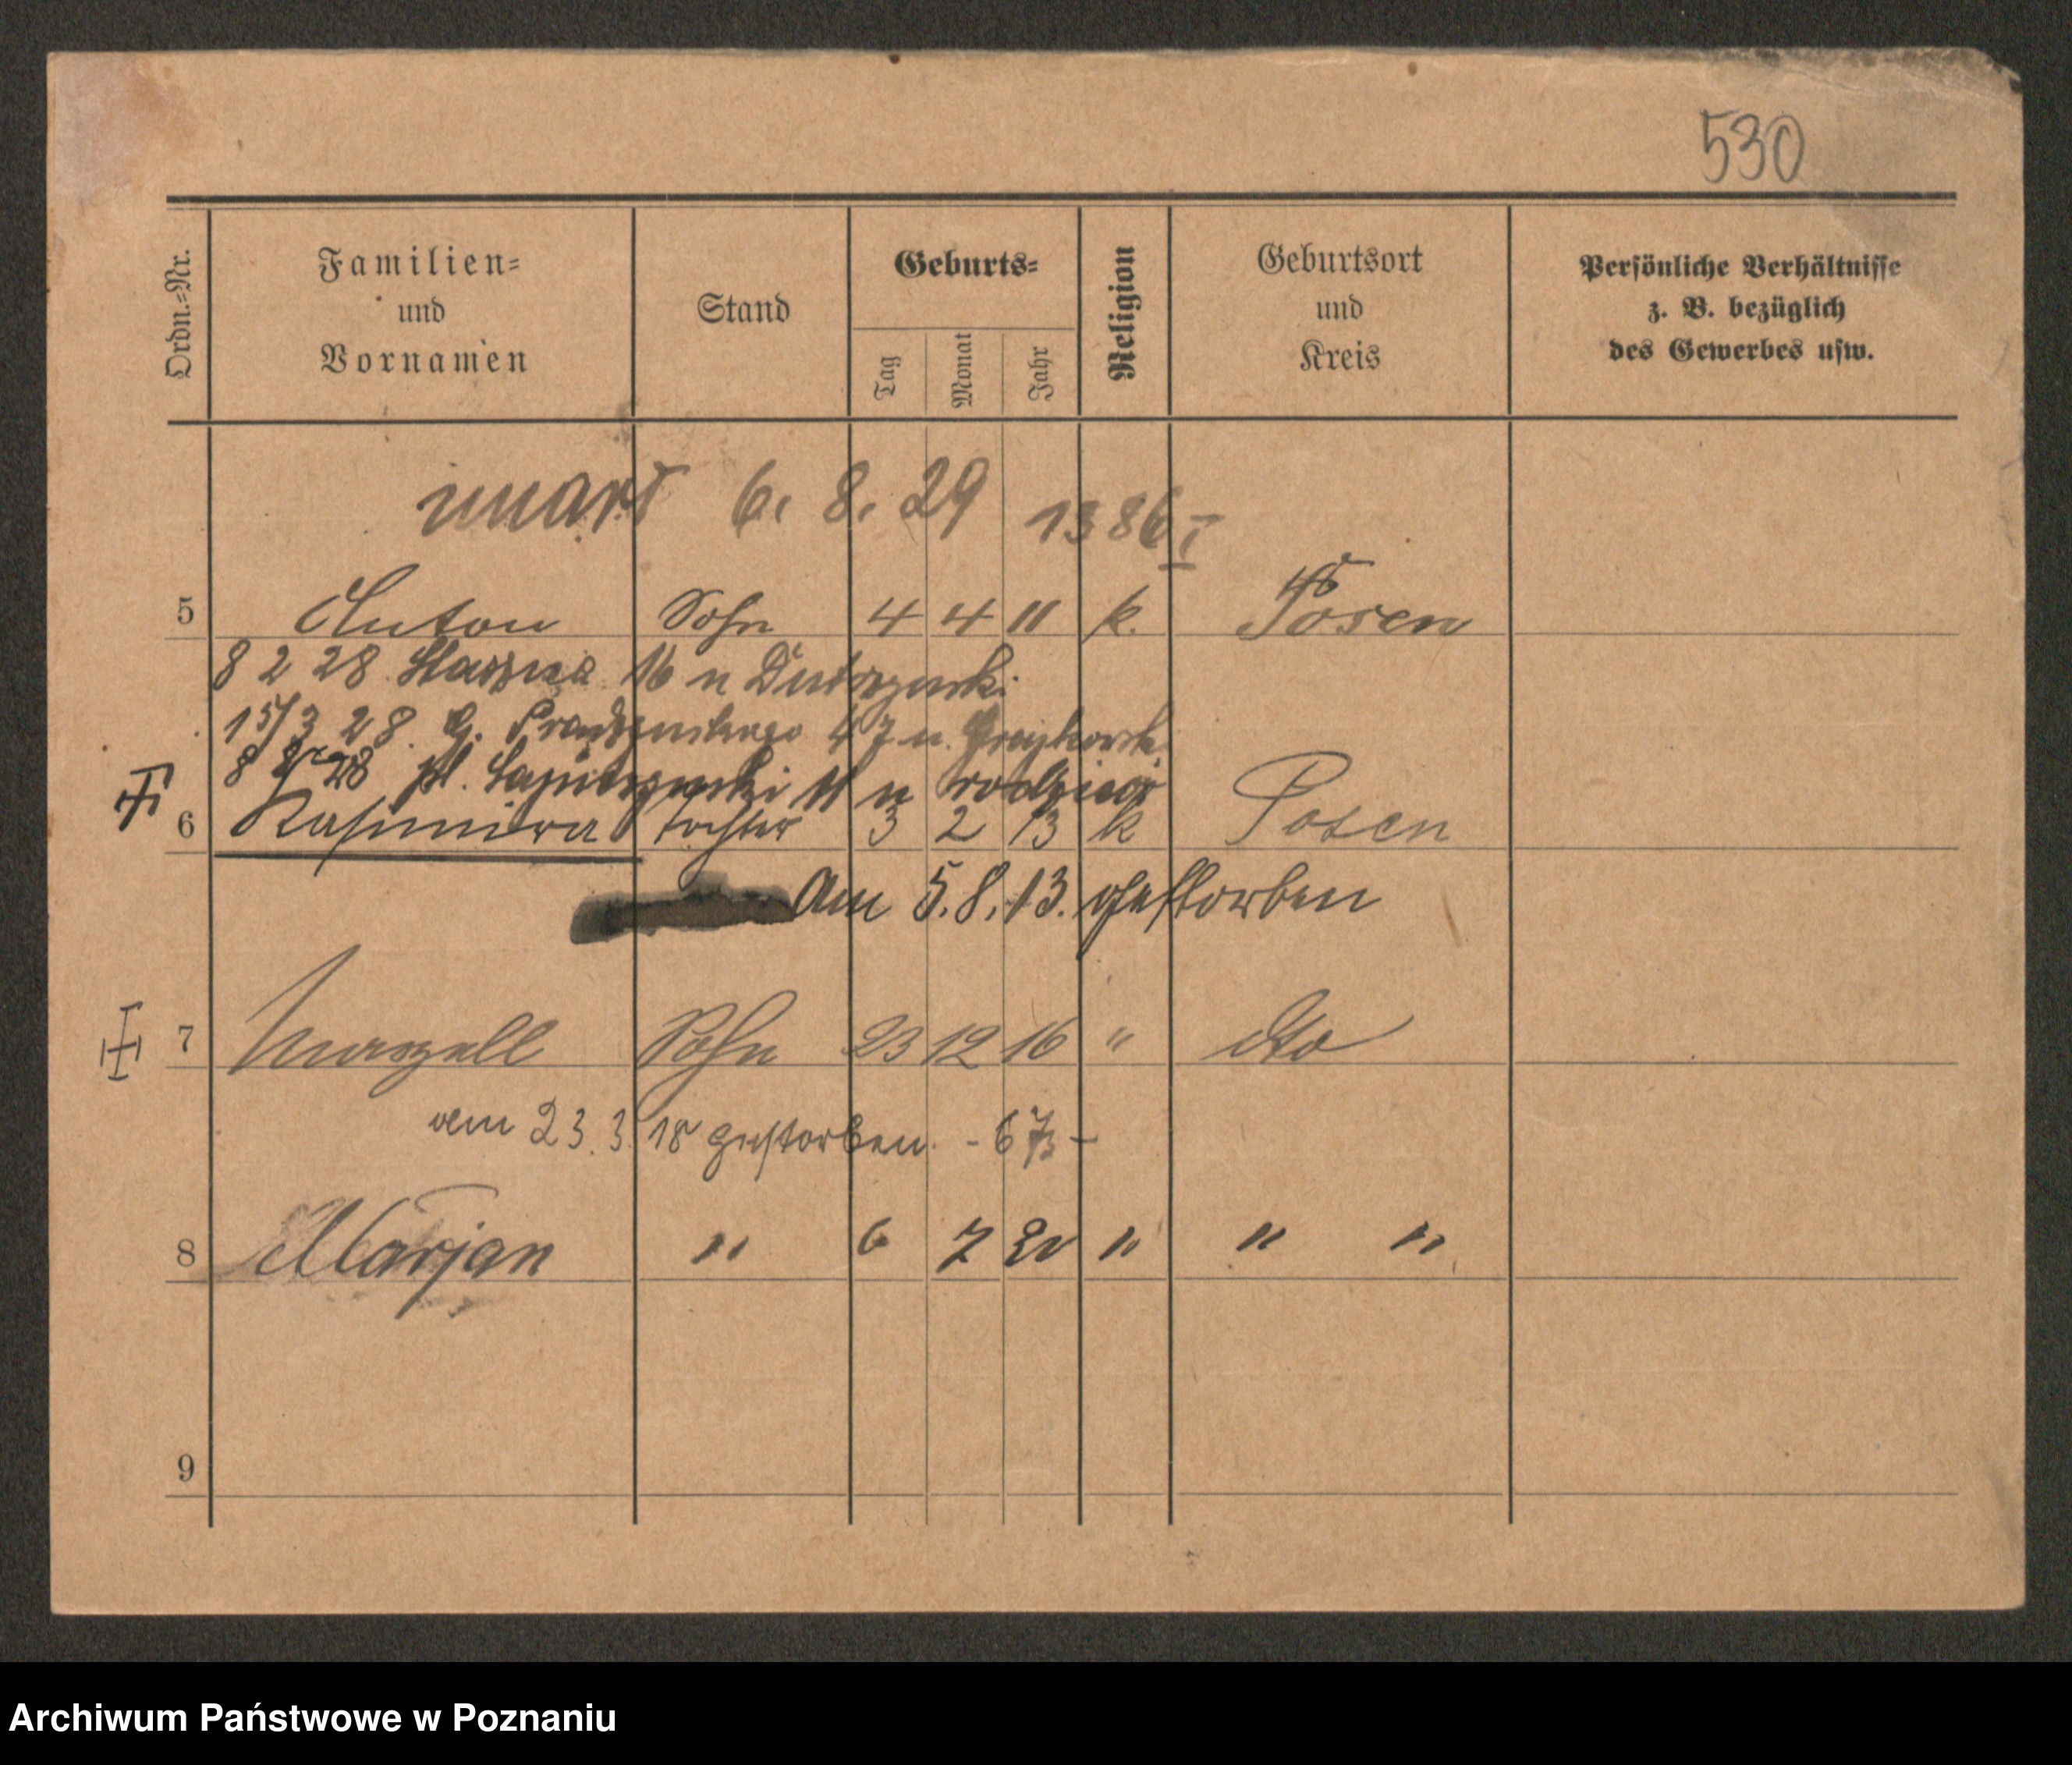 530
Ordn.-Nr. Familien- und Vornamen Stand Geburts- Tag Monat Jahr Religion Geburtsort und Kreis Persönliche Verhältnisse z. B. bezüglich des Gewerbes usw.
umarł 6. 8. 29 1386 I
5 Anton Sohn 4 4 11 k. Posen
8 2 28 16 u
15/3 28. 47 u.
8 28 pl. 11 u rodziców
6 Kasimira Tochter 3 2 13 k Posen
Am 5.8.13. gestorben
7 Marzell Sohn 23 12 16 " dto
am 23.3.18 gestorben.
8 Marjan " 6 7 20 " " "
9
Archiwum Państwowe w Poznaniu